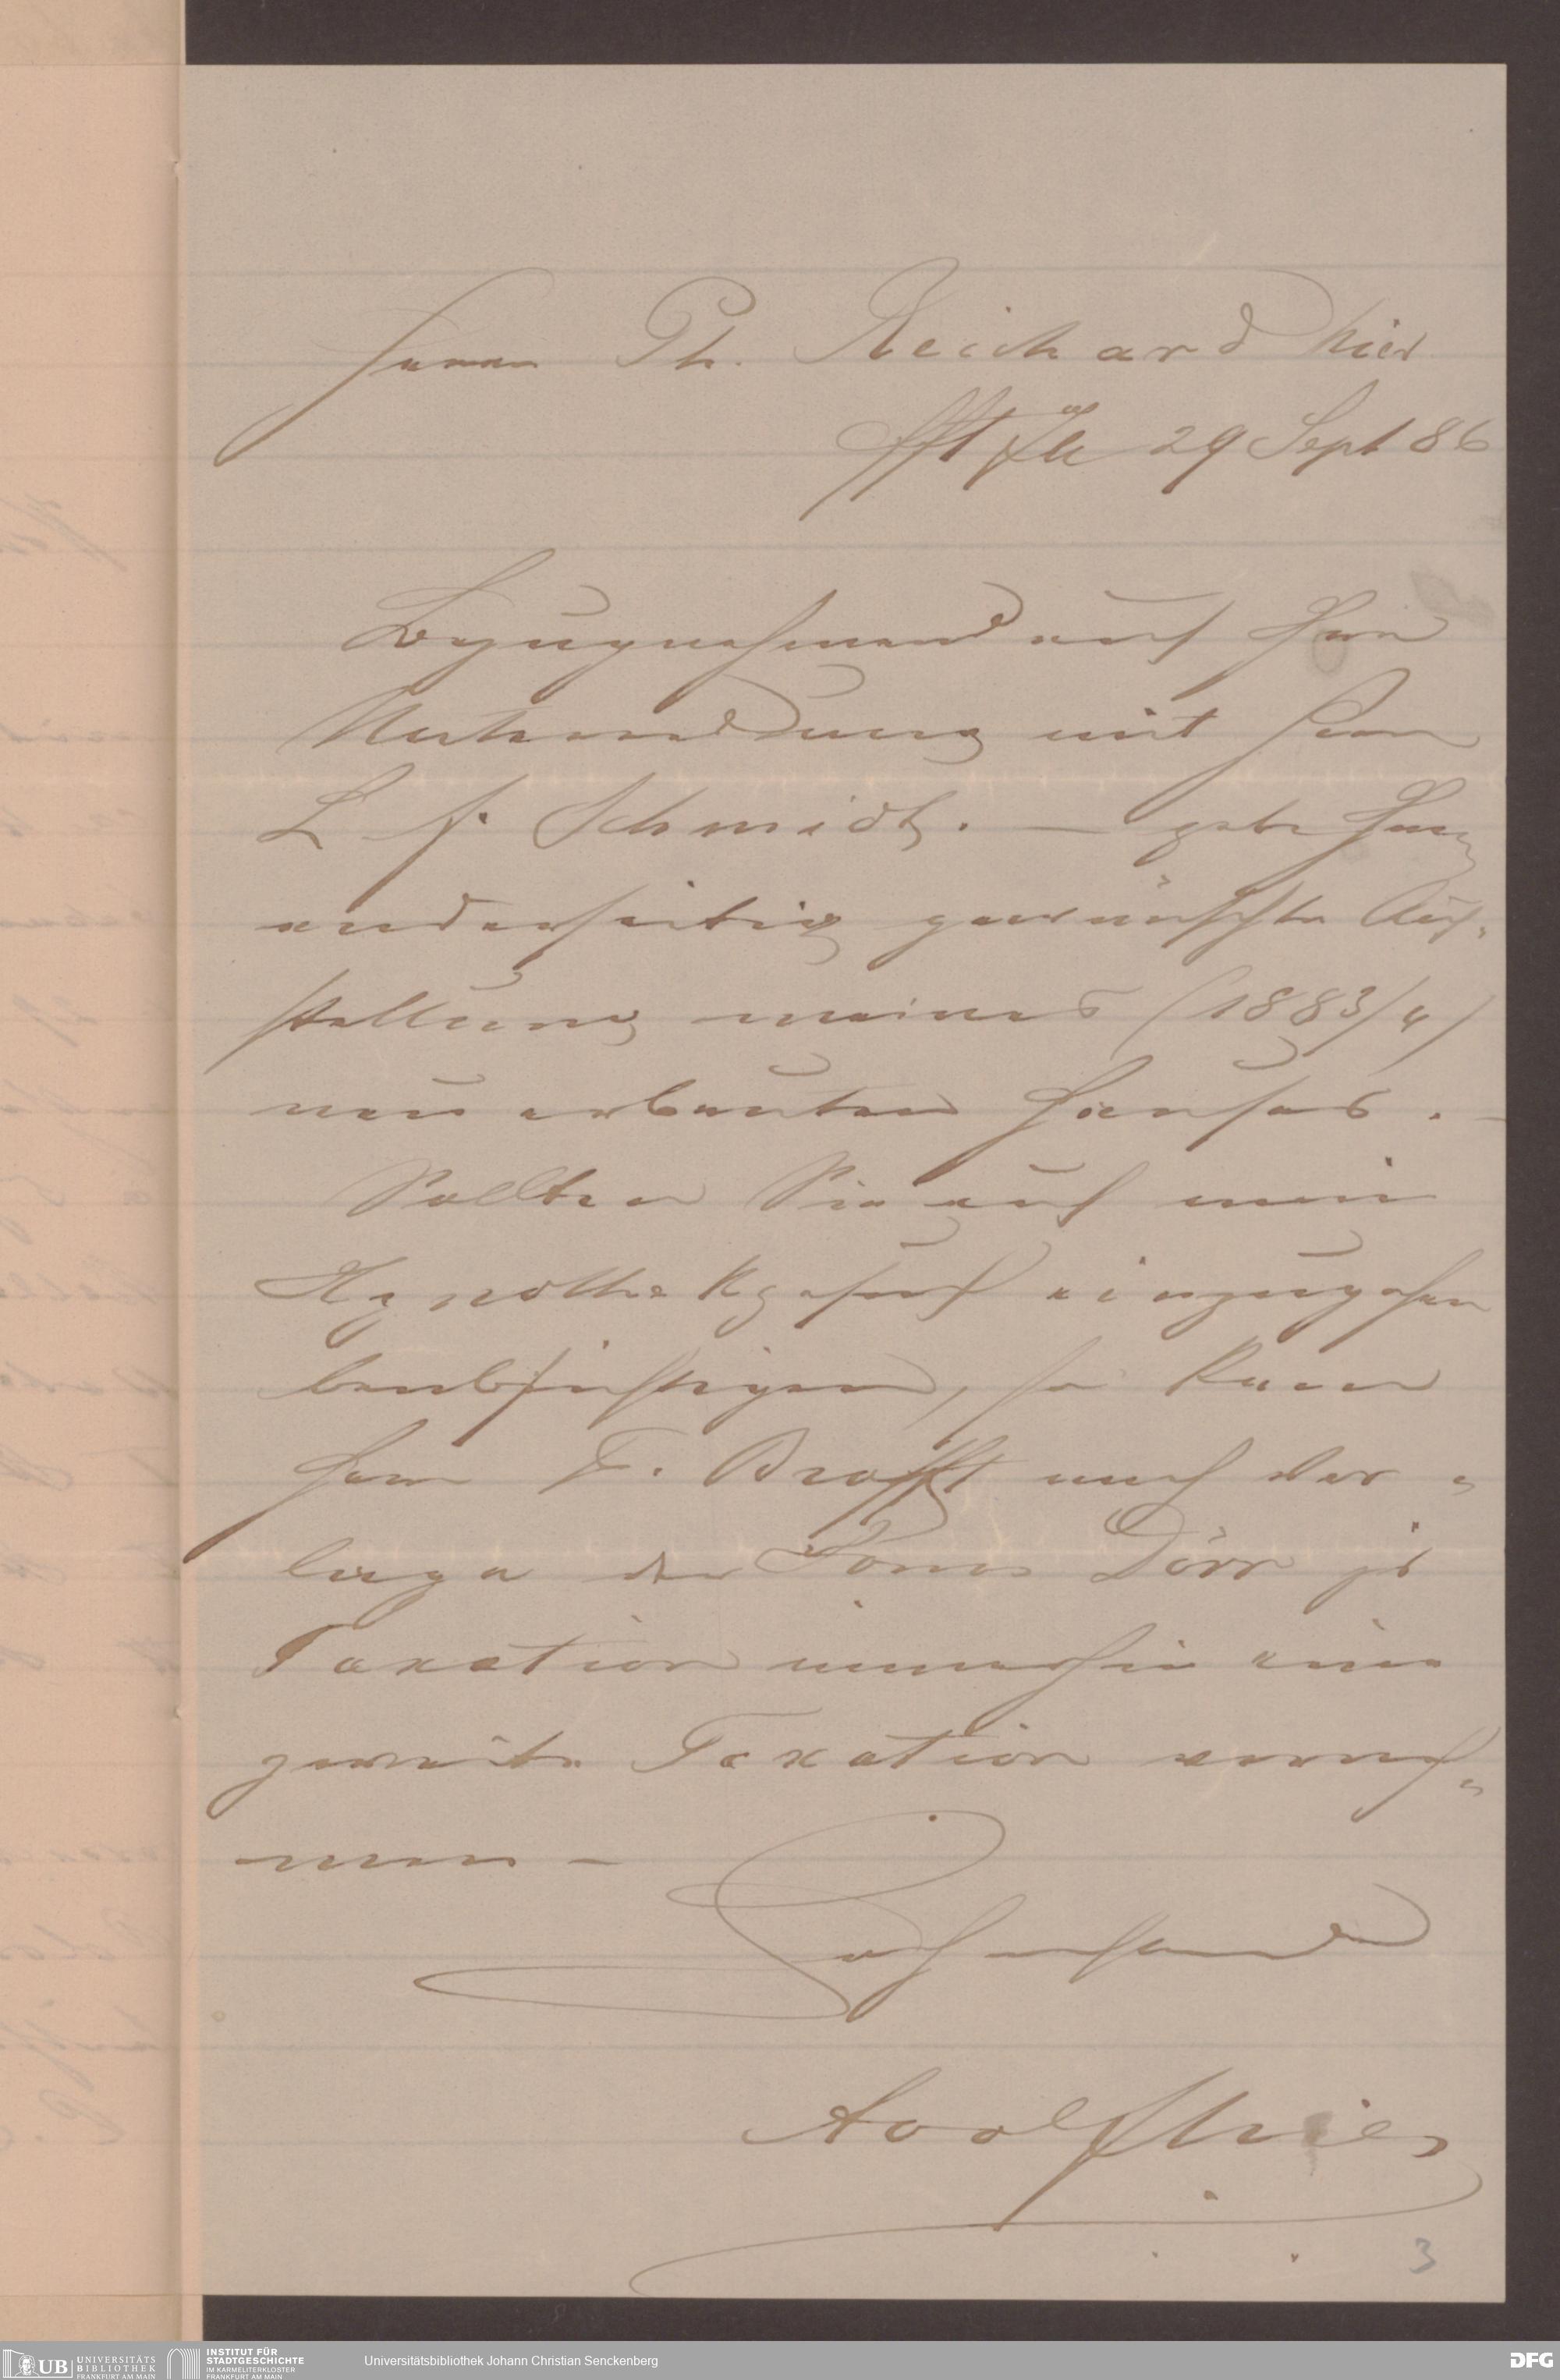 Herrn Ph. Reichard hier
Fft a/M 29 Sept 86
Bezugnehmend auf Ihre
Unterredung mit Herrn
L. F. Schmidt. — gebe Ihnen
anderseitig gewünschte Auf-
stellung meines (1883/4)
neu erbauten Hauses. —
Sollten Sie auf mein
Hypothekgesuch einzugehen
beabsichtigen, so kann
Herr F. Brofft nach Vor-
lage der Dörr
Taxation immerhin eine
zweite Taxation vorneh-
men —
Achtend
Adolf
3
UB UNIVERSITÄTS BIBLIOTHEK FRANKFURT AM MAIN
INSTITUT FÜR STADTGESCHICHTE IM KARMELITERKLOSTER FRANKFURT AM MAIN
Universitätsbibliothek Johann Christian Senckenberg
DFG